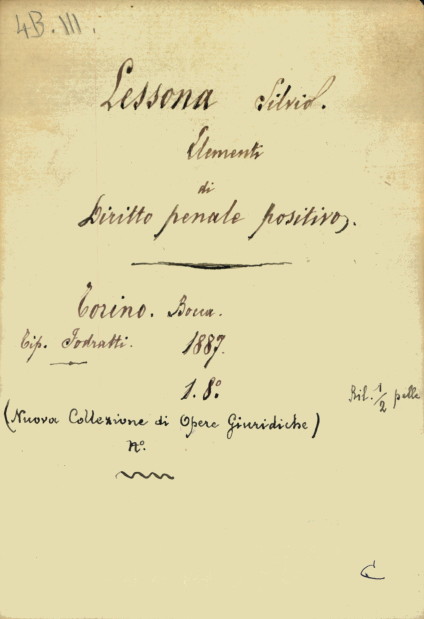 4B.III.
Lessona Silvio.
Elementi
di
Diritto penale positivo.
Torino. Bocca.
Tip. Fodratti. 1887.
1. 8º
Ril. 1/2 pelle
(Nuova Collezione di Opere Giuridiche)
nº.
C